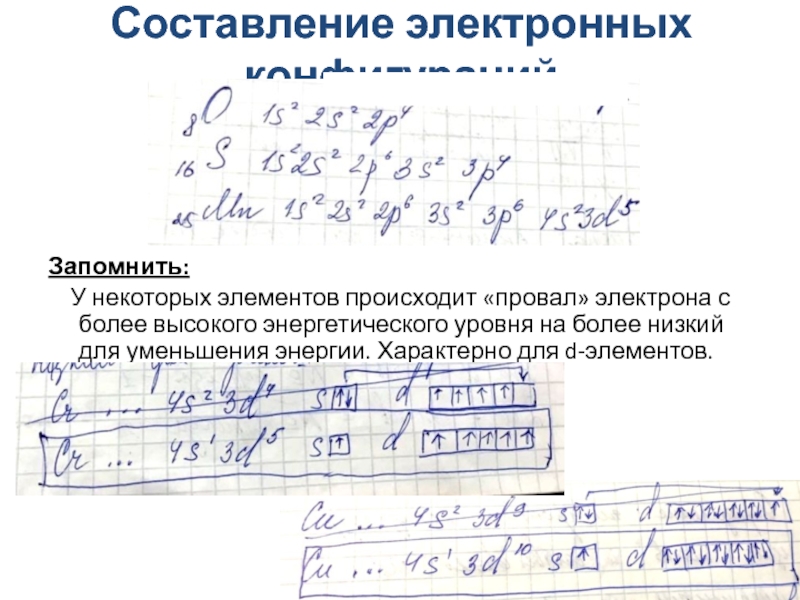 Составление электронных
конфигураций
₈O 1s² 2s² 2p⁴
₁₆S 1s² 2s² 2p⁶ 3s² 3p⁴
₂₅Mn 1s² 2s² 2p⁶ 3s² 3p⁶ 4s² 3d⁵
Запомнить:
У некоторых элементов происходит «провал» электрона с
более высокого энергетического уровня на более низкий
для уменьшения энергии. Характерно для d-элементов.
Cr ... 4s² 3d⁴ s ↑↓ d ↑ ↑ ↑ ↑
Cr ... 4s¹ 3d⁵ s ↑ d ↑ ↑ ↑ ↑ ↑
Cu ... 4s² 3d⁹ s ↑↓ d ↑↓ ↑↓ ↑↓ ↑↓ ↑
Cu ... 4s¹ 3d¹⁰ s ↑ d ↑↓ ↑↓ ↑↓ ↑↓ ↑↓